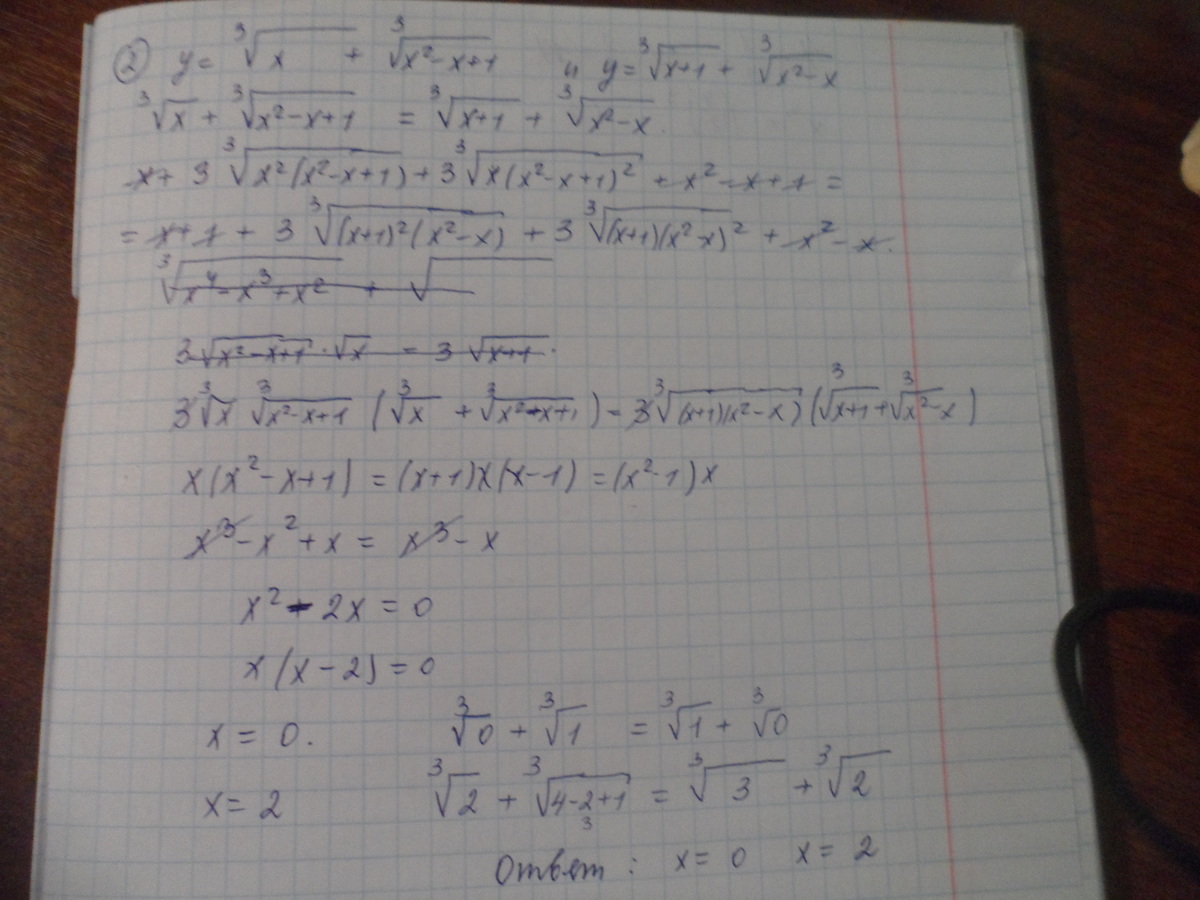 ② y = ∛x + ∛(x²-x+1) и y = ∛(x+1) + ∛(x²-x)
∛x + ∛(x²-x+1) = ∛(x+1) + ∛(x²-x).
x + 3 ∛(x²(x²-x+1)) + 3 ∛(x(x²-x+1)²) + x²-x+1 =
= x+1 + 3 ∛((x+1)²(x²-x)) + 3 ∛((x+1)(x²-x)²) + x²-x.
∛(x⁴-x³+x²) + √
3 √(x²-x+1) · √x = 3 √(x+1).
3 ∛x ∛(x²-x+1) (∛x + ∛(x²-x+1)) = 3 ∛((x+1)(x²-x)) (∛(x+1) + ∛(x²-x))
x(x²-x+1) = (x+1)x(x-1) = (x²-1)x
x³-x²+x = x³-x
x²-2x = 0
x(x-2) = 0
x = 0. ∛0 + ∛1 = ∛1 + ∛0
x = 2 ∛2 + ∛(4-2+1) = ∛3 + ∛2
3
Ответ: x = 0 x = 2